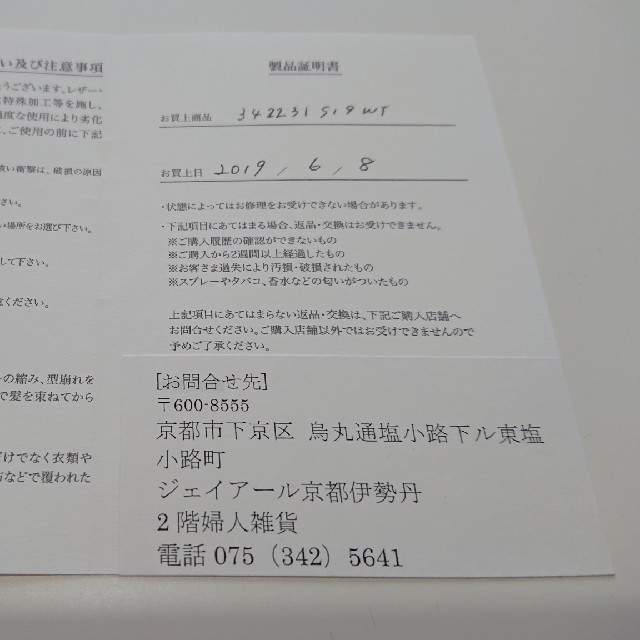 い及び注意事項
うございます。レザー・
特殊加工等を施し、
度な使用により劣化
、ご使用の前に下記
い衝撃は、破損の原因
さい。
い場所をお選び下さい。
して下さい。
ください。
の縮み、型崩れを
で髪を束ねてから
だけでなく衣類や
などで覆われた
製品証明書
お買上商品 342231 S19 WT
お買上日 2019 , 6 , 8
・状態によってはお修理をお受けできない場合があります。
・下記項目にあてはまる場合、返品・交換はお受けできません。
※ご購入履歴の確認ができないもの
※ご購入から2週間以上経過したもの
※お客さま過失により汚損・破損されたもの
※スプレーやタバコ、香水などの匂いがついたもの
上記項目にあてはまらない返品・交換は、下記ご購入店舗へ
お問合せください。ご購入店舗以外ではお受けできませんので
予めご了承ください。
[お問合せ先]
〒600-8555
京都市下京区 烏丸通塩小路下ル東塩
小路町
ジェイアール京都伊勢丹
2階婦人雑貨
電話075（342）5641